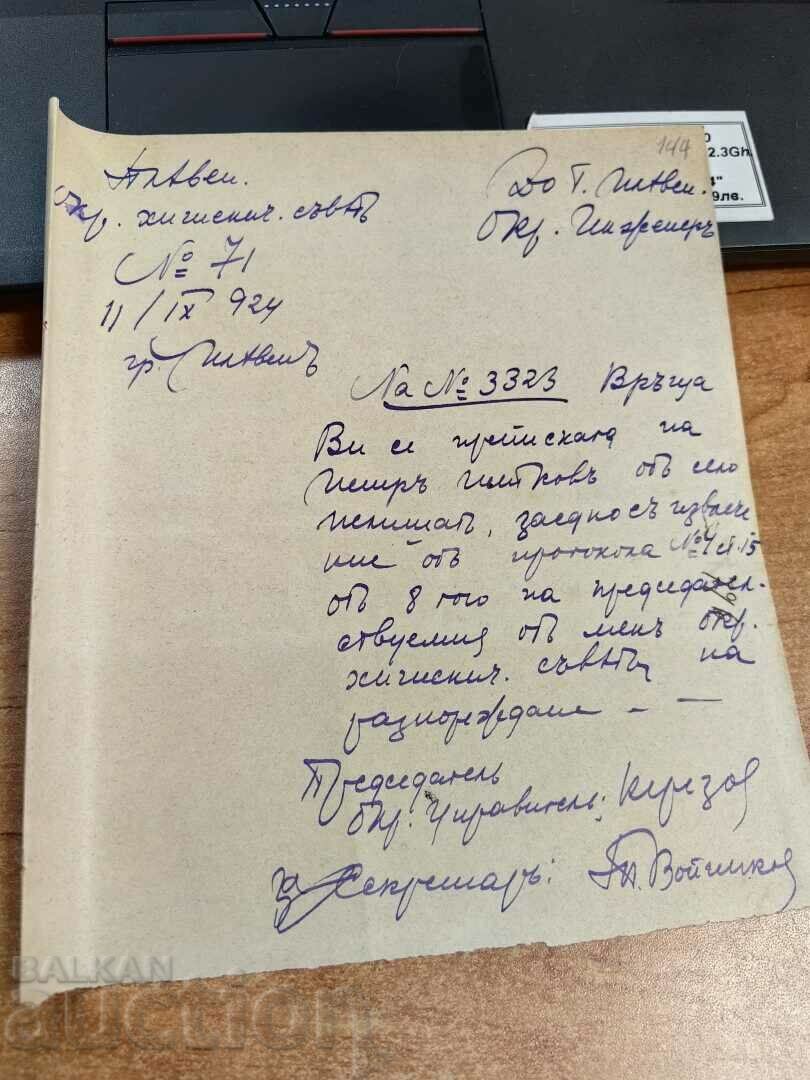 144
Плѣвен.
Окр. хигиенич. съвѣтъ
№ 71
11/IX 924
гр. Плѣвенъ
До Г. Плѣвен.
Окр. Инженеръ
На № 3323 Връща
Ви се преписката на
Петръ Цвѣтковъ отъ село
Пелишатъ, заедно съ извлече
ние отъ протокола № 4 ст. 15
отъ 8 того на председател-
ствуемия отъ менъ окр.
хигиенич. съвѣтъ, на
разпореждане - -
Председатель
Окр. Управитель:
за Секретарь: Войников
2.3Gh
9лв.
BALKAN
auction